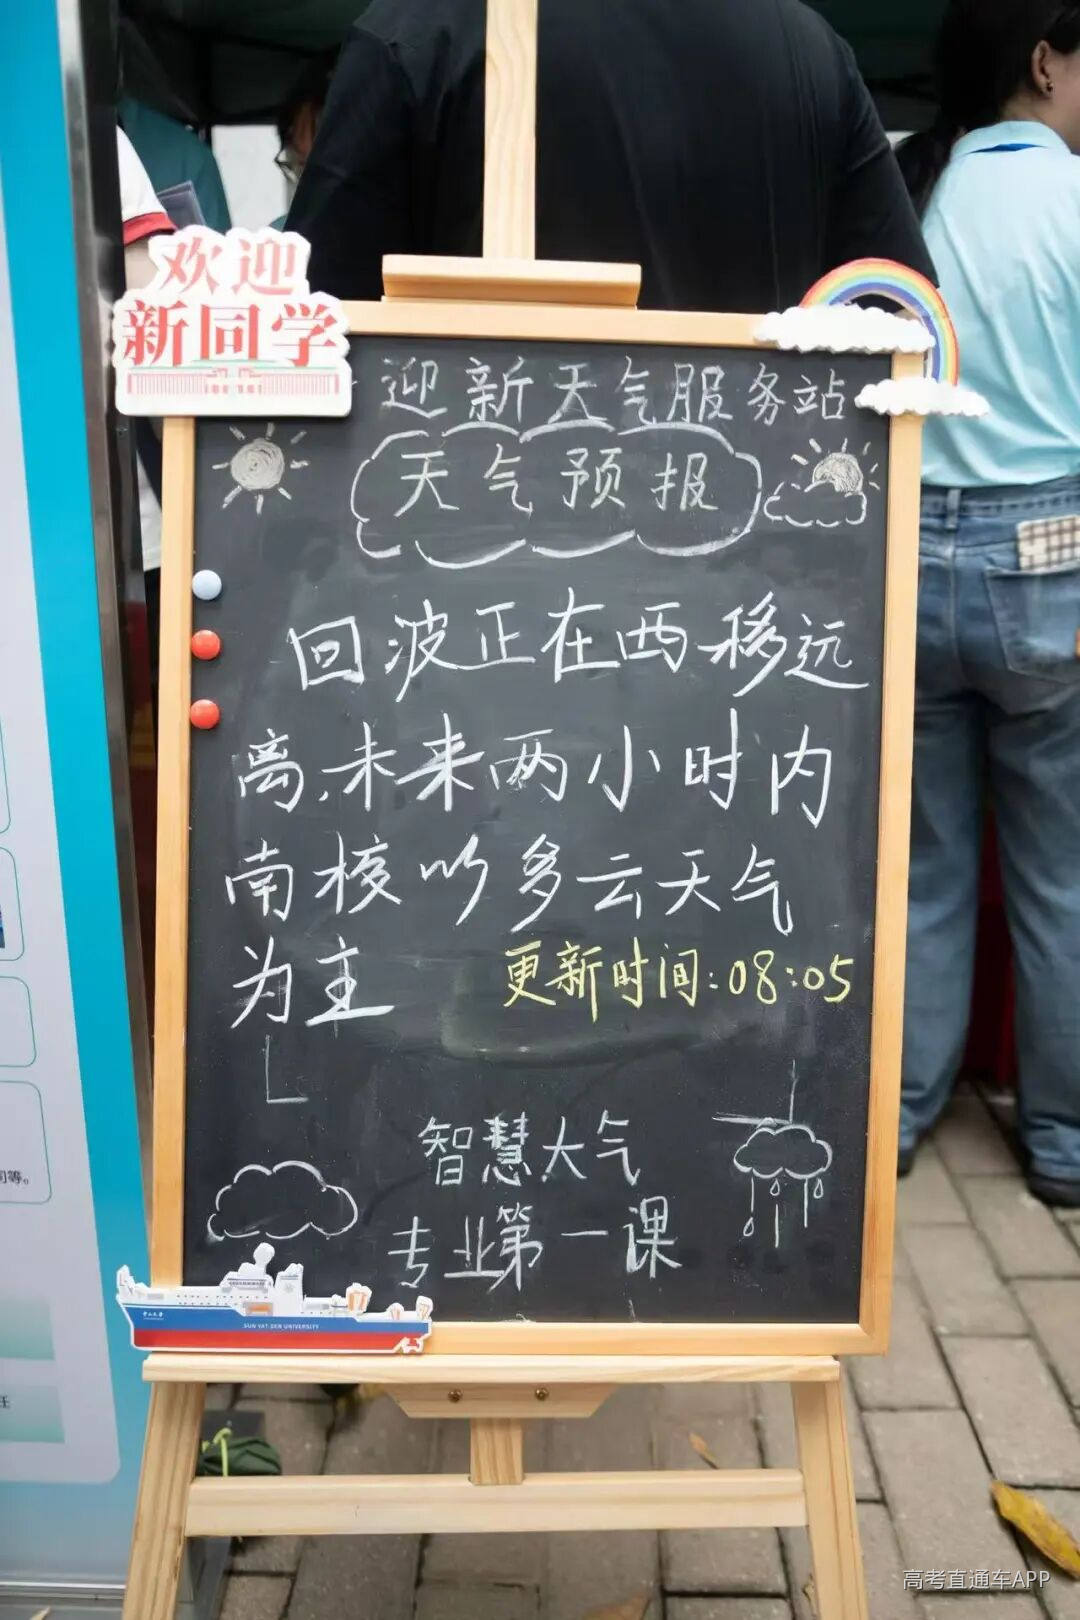 欢迎
新同学
迎新天气服务站
天气预报
回波正在西移远
离,未来两小时内
南校以多云天气
为主
更新时间:08:05
智慧大气
专业第一课
中山大学
SUN YAT-SEN UNIVERSITY
司等。
任
高考直通车APP